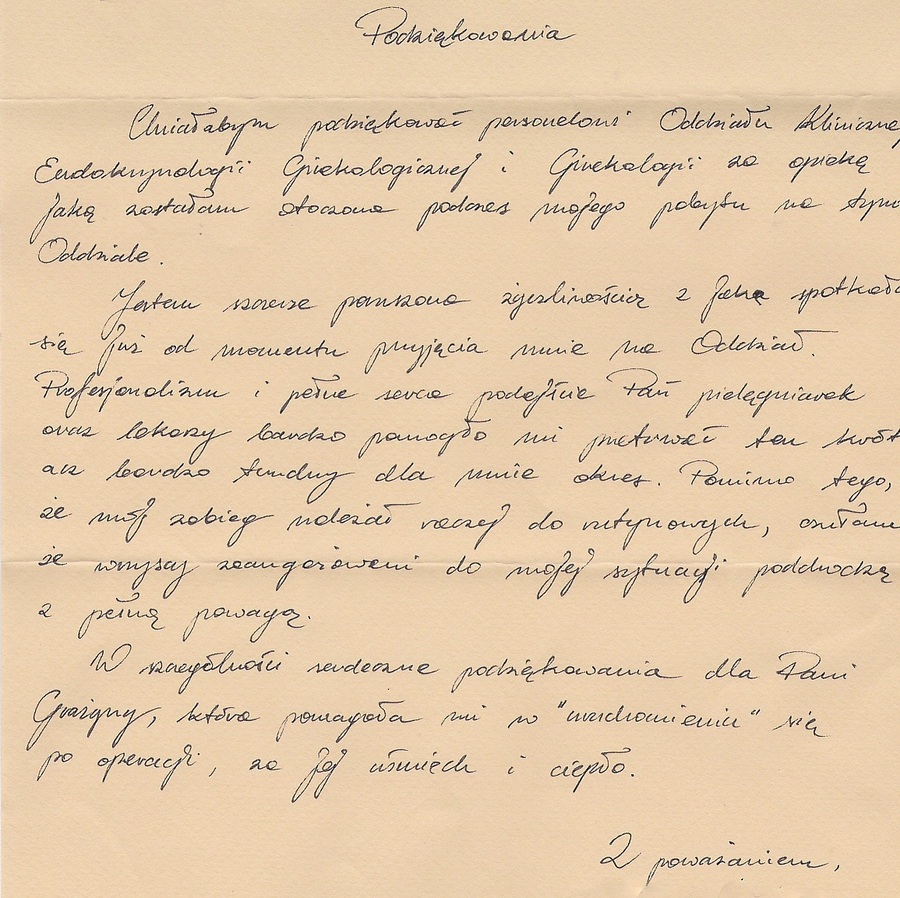 Podziękowania
Chciałabym podziękować personelowi Oddziału Kliniczneg
Endokrynologii Ginekologicznej i Ginekologii za opiekę
jaką zostałam otoczona podczas mojego pobytu na tym
Oddziale.
Jestem szczerze poruszona życzliwością z jaką spotkała
się już od momentu przyjęcia mnie na Oddział.
Profesjonalizm i pełne serca podejście Pań pielęgniarek
oraz lekarzy bardzo pomogło mi przetrwać ten krót
acz bardzo trudny dla mnie okres. Pomimo tego,
że mój zabieg należał raczej do rutynowych, czułam
że wszyscy zaangażowani do mojej sytuacji podchodzą
z pełną powagą.
W szczególności serdeczne podziękowania dla Pani
Grażyny, która pomagała mi w "uruchomieniu" się
po operacji, za Jej uśmiech i ciepło.
Z poważaniem,